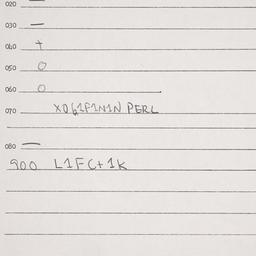 020 —
030 —
040 +
050 O
060 O
070 X061P1N1N PERL
080 —
900 L1FC+1K